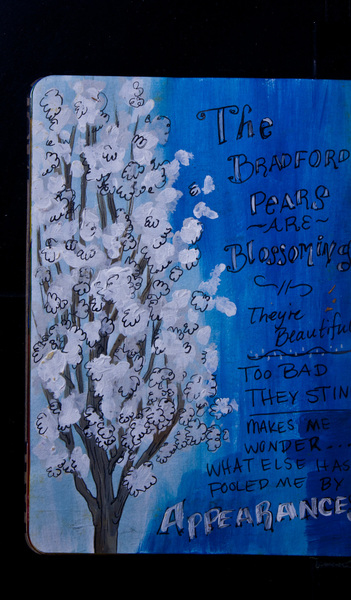 The
BRADFORD
PEARS
~ARE~
Blossoming
They're
Beautiful
TOO BAD
THEY STIN
MAKES ME
WONDER...
WHAT ELSE HAS
FOOLED ME BY
APPEARANCE